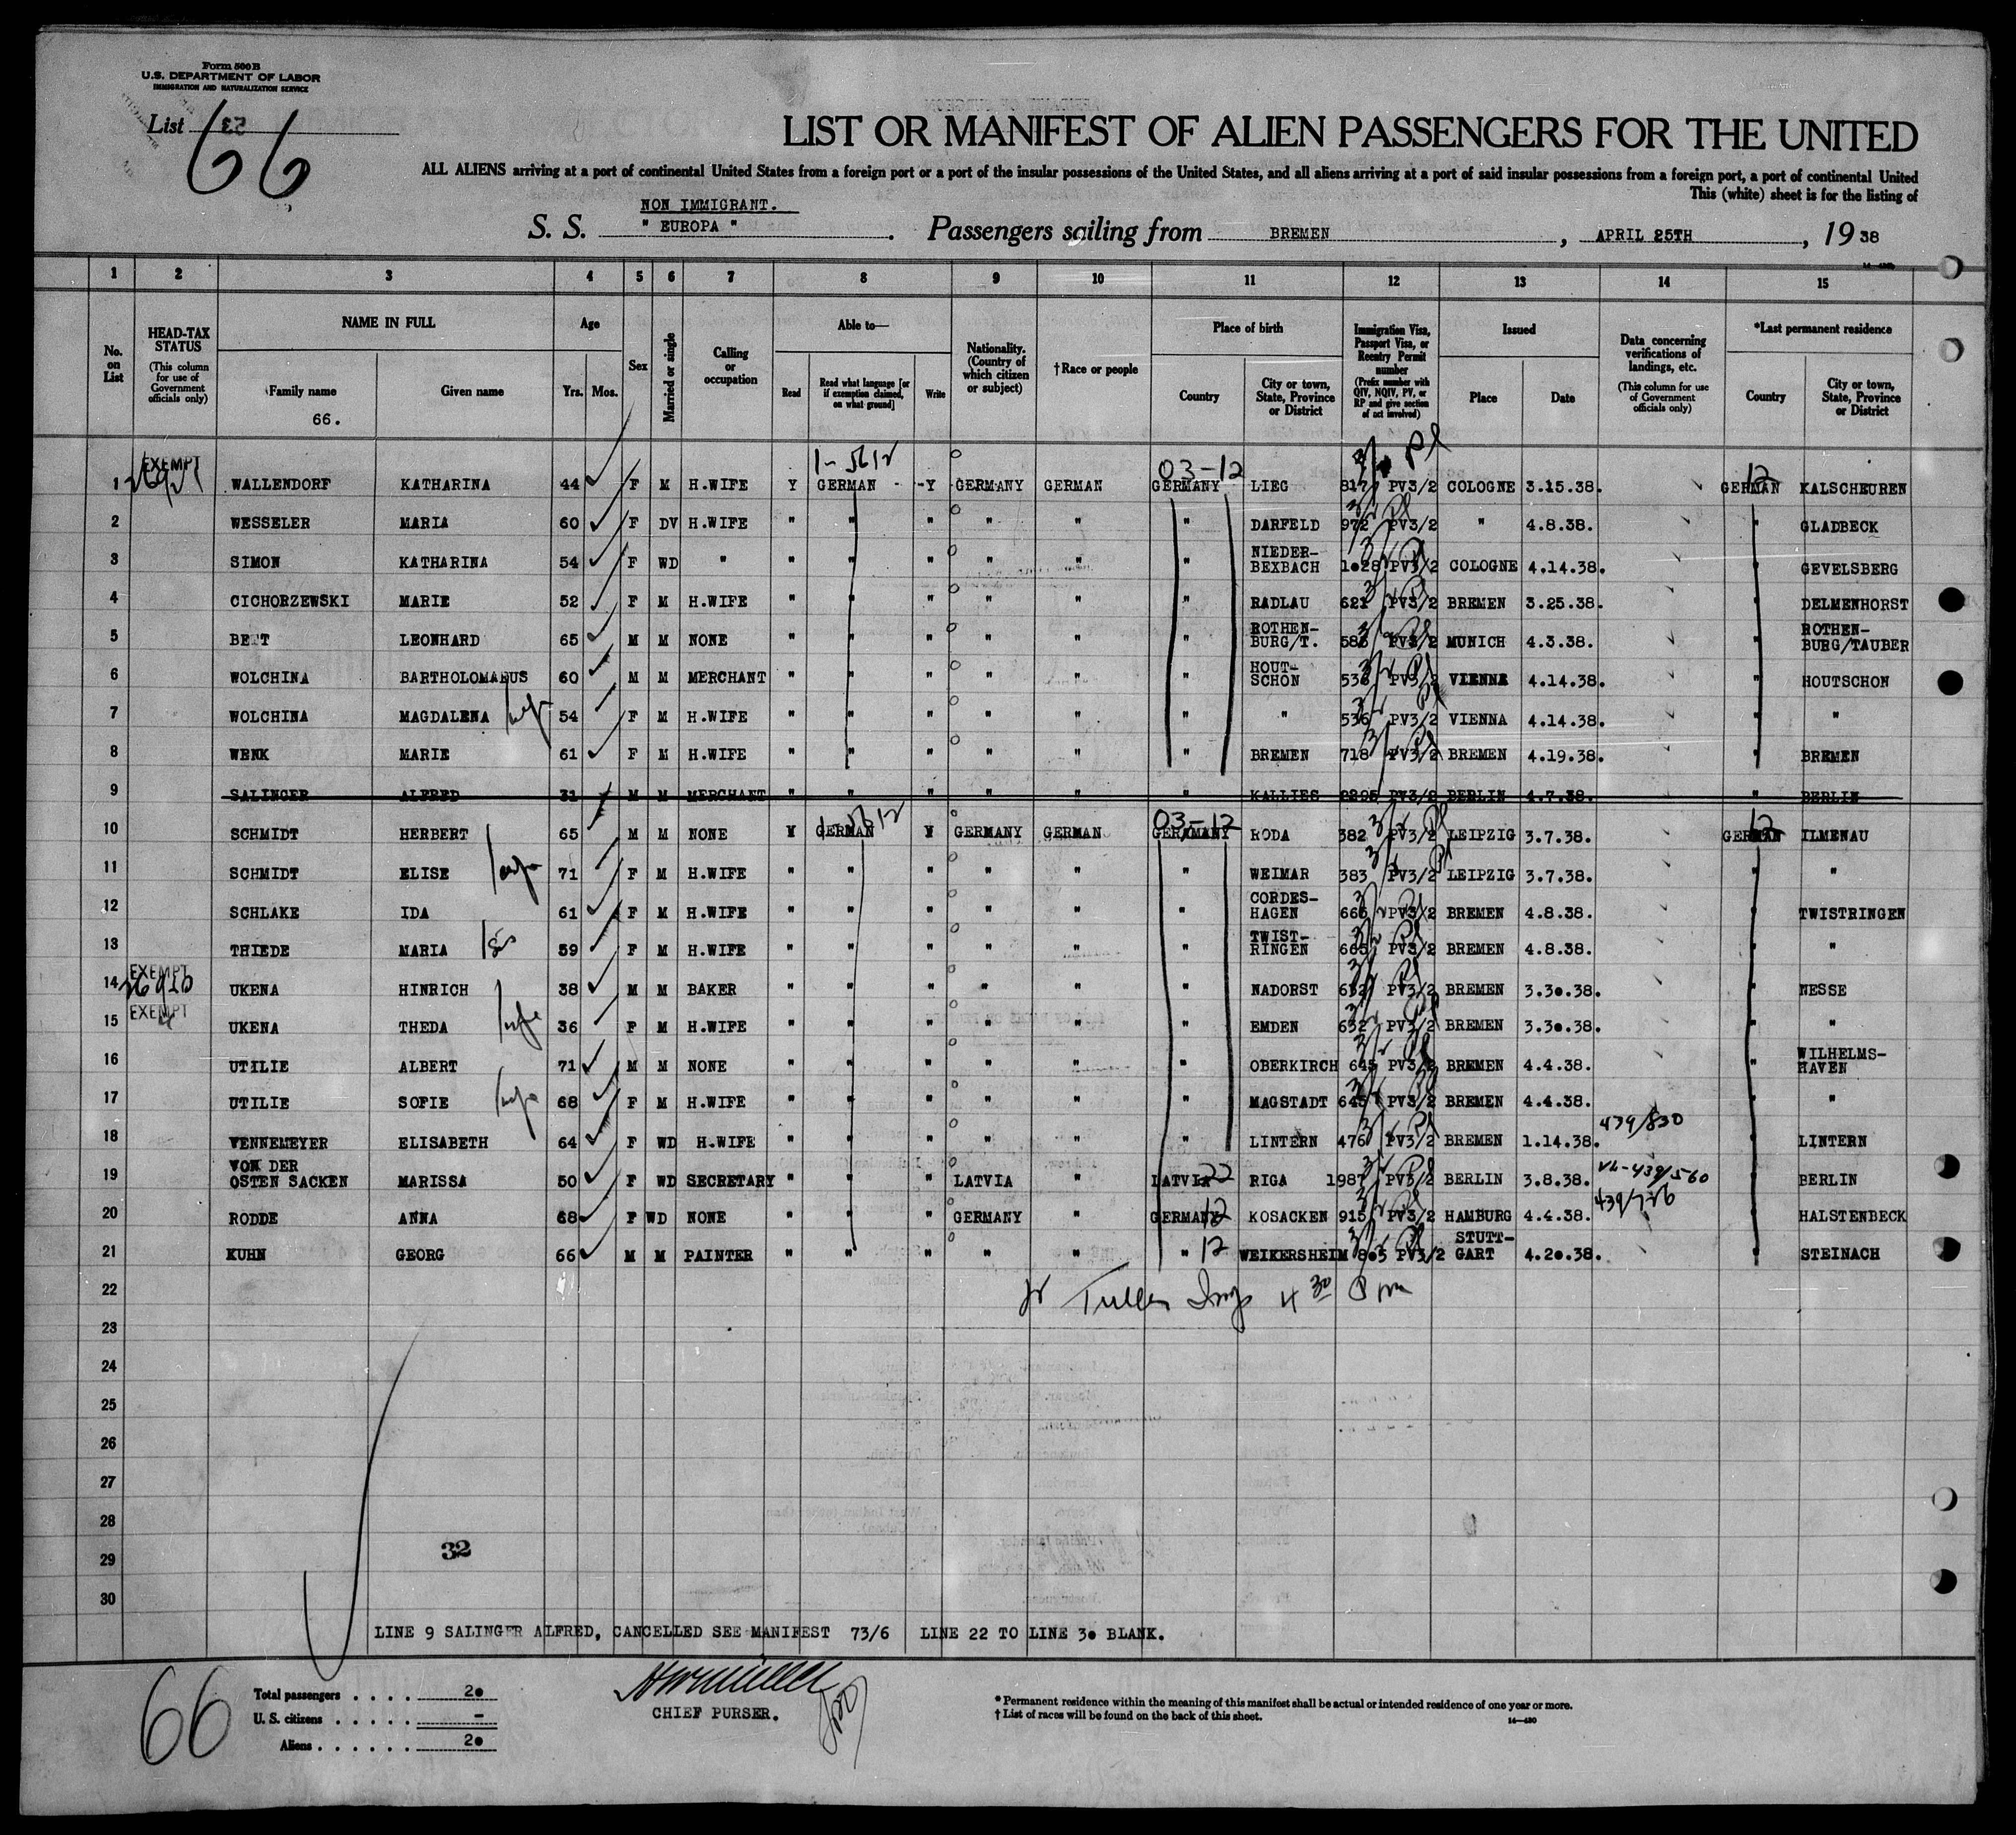 Form 500 B
U.S. DEPARTMENT OF LABOR
IMMIGRATION AND NATURALIZATION SERVICE
List 53
66
LIST OR MANIFEST OF ALIEN PASSENGERS FOR THE UNITED
ALL ALIENS arriving at a port of continental United States from a foreign port or a port of the insular possessions of the United States, and all aliens arriving at a port of said insular possessions from a foreign port, a port of continental United
This (white) sheet is for the listing of
NON IMMIGRANT.
S. S. " EUROPA " . Passengers sailing from BREMEN , APRIL 25TH , 19 38
1 2 3 4 5 6 7 8 9 10 11 12 13 14 15
No. on List
HEAD-TAX STATUS (This column for use of Government officials only)
NAME IN FULL
Family name
Given name
66.
Age
Yrs. Mos.
Sex
Married or single
Calling or occupation
Able to—
Read
Read what language [or if exemption claimed, on what ground]
Write
Nationality. (Country of which citizen or subject)
†Race or people
Place of birth
Country
City or town, State, Province or District
Immigration Visa, Passport Visa, or Reentry Permit number (Prefix number with QIV, NQIV, PV, or RP and give section of act involved)
Issued
Place
Date
Data concerning verifications of landings, etc. (This column for use of Government officials only)
*Last permanent residence
Country
City or town, State, Province or District
EXEMPT 03-12 12
1 WALLENDORF KATHARINA 44 F M H.WIFE Y GERMAN Y GERMANY GERMAN GERMANY LIEG 817 PV3/2 COLOGNE 3.15.38. GERMAN KALSCHEUREN
2 WESSELER MARIA 60 F DV H.WIFE " " " " " " DARFELD 972 PV3/2 " 4.8.38. " GLADBECK
3 SIMON KATHARINA 54 F WD " " " " " " " NIEDER-BEXBACH 1028 PV3/2 COLOGNE 4.14.38. " GEVELSBERG
4 CICHORZEWSKI MARIE 52 F M H.WIFE " " " " " " RADLAU 621 PV3/2 BREMEN 3.25.38. " DELMENHORST
5 BETT LEONHARD 65 M M NONE " " " " " " ROTHEN-BURG/T. 586 PV3/2 MUNICH 4.3.38. " ROTHEN-BURG/TAUBER
6 WOLCHINA BARTHOLOMAEUS 60 M M MERCHANT " " " " " " HOUT-SCHON 536 PV3/2 VIENNA 4.14.38. " HOUTSCHON
7 WOLCHINA MAGDALENA 54 F M H.WIFE " " " " " " " 536 PV3/2 VIENNA 4.14.38. " "
8 WENK MARIE 61 F M H.WIFE " " " " " " BREMEN 718 PV3/2 BREMEN 4.19.38. " BREMEN
9 SALINGER ALFRED 31 M M MERCHANT " " " " " " KALLIES 2295 PV3/2 BERLIN 4.7.38. " BERLIN
03-12 12
10 SCHMIDT HERBERT 65 M M NONE Y GERMAN Y GERMANY GERMAN GERMANY RODA 382 PV3/2 LEIPZIG 3.7.38. GERMAN ILMENAU
11 SCHMIDT ELISE 71 F M H.WIFE " " " " " " WEIMAR 383 PV3/2 LEIPZIG 3.7.38. " "
12 SCHLAKE IDA 61 F M H.WIFE " " " " " " CORDES-HAGEN 666 PV3/2 BREMEN 4.8.38. " TWISTRINGEN
13 THIEDE MARIA 59 F M H.WIFE " " " " " " TWIST-RINGEN 665 PV3/2 BREMEN 4.8.38. " "
EXEMPT
14 UKENA HINRICH 38 M M BAKER " " " " " " NADORST 632 PV3/2 BREMEN 3.30.38. " NESSE
EXEMPT
15 UKENA THEDA 36 F M H.WIFE " " " " " " EMDEN 632 PV3/2 BREMEN 3.30.38. " "
16 UTILIE ALBERT 71 M M NONE " " " " " " OBERKIRCH 645 PV3/2 BREMEN 4.4.38. " WILHELMS-HAVEN
17 UTILIE SOFIE 68 F M H.WIFE " " " " " " MAGSTADT 645 PV3/2 BREMEN 4.4.38. " "
18 VENNEMEYER ELISABETH 64 F WD H.WIFE " " " " " " LINTERN 476 PV3/2 BREMEN 1.14.38. 439/830 " LINTERN
19 VON DER OSTEN SACKEN MARISSA 50 F WD SECRETARY " " " LATVIA " LATVIA 22 RIGA 1987 PV3/2 BERLIN 3.8.38. 439/560 " BERLIN
20 RODDE ANNA 68 F WD NONE " " " GERMANY " GERMANY 12 KOSACKEN 915 PV3/2 HAMBURG 4.4.38. " HALSTENBECK
21 KUHN GEORG 66 M M PAINTER " " " " " " 12 WEIKERSHEIM 805 PV3/2 STUTT-GART 4.20.38. " STEINACH
22
23
24
25
26
27
28
29
30
32
LINE 9 SALINGER ALFRED, CANCELLED SEE MANIFEST 73/6 LINE 22 TO LINE 30 BLANK.
66
Total passengers . . . . 20
U. S. citizens . . . . . -
Aliens . . . . . . 20
CHIEF PURSER.
* Permanent residence within the meaning of this manifest shall be actual or intended residence of one year or more.
† List of races will be found on the back of this sheet.
14—430